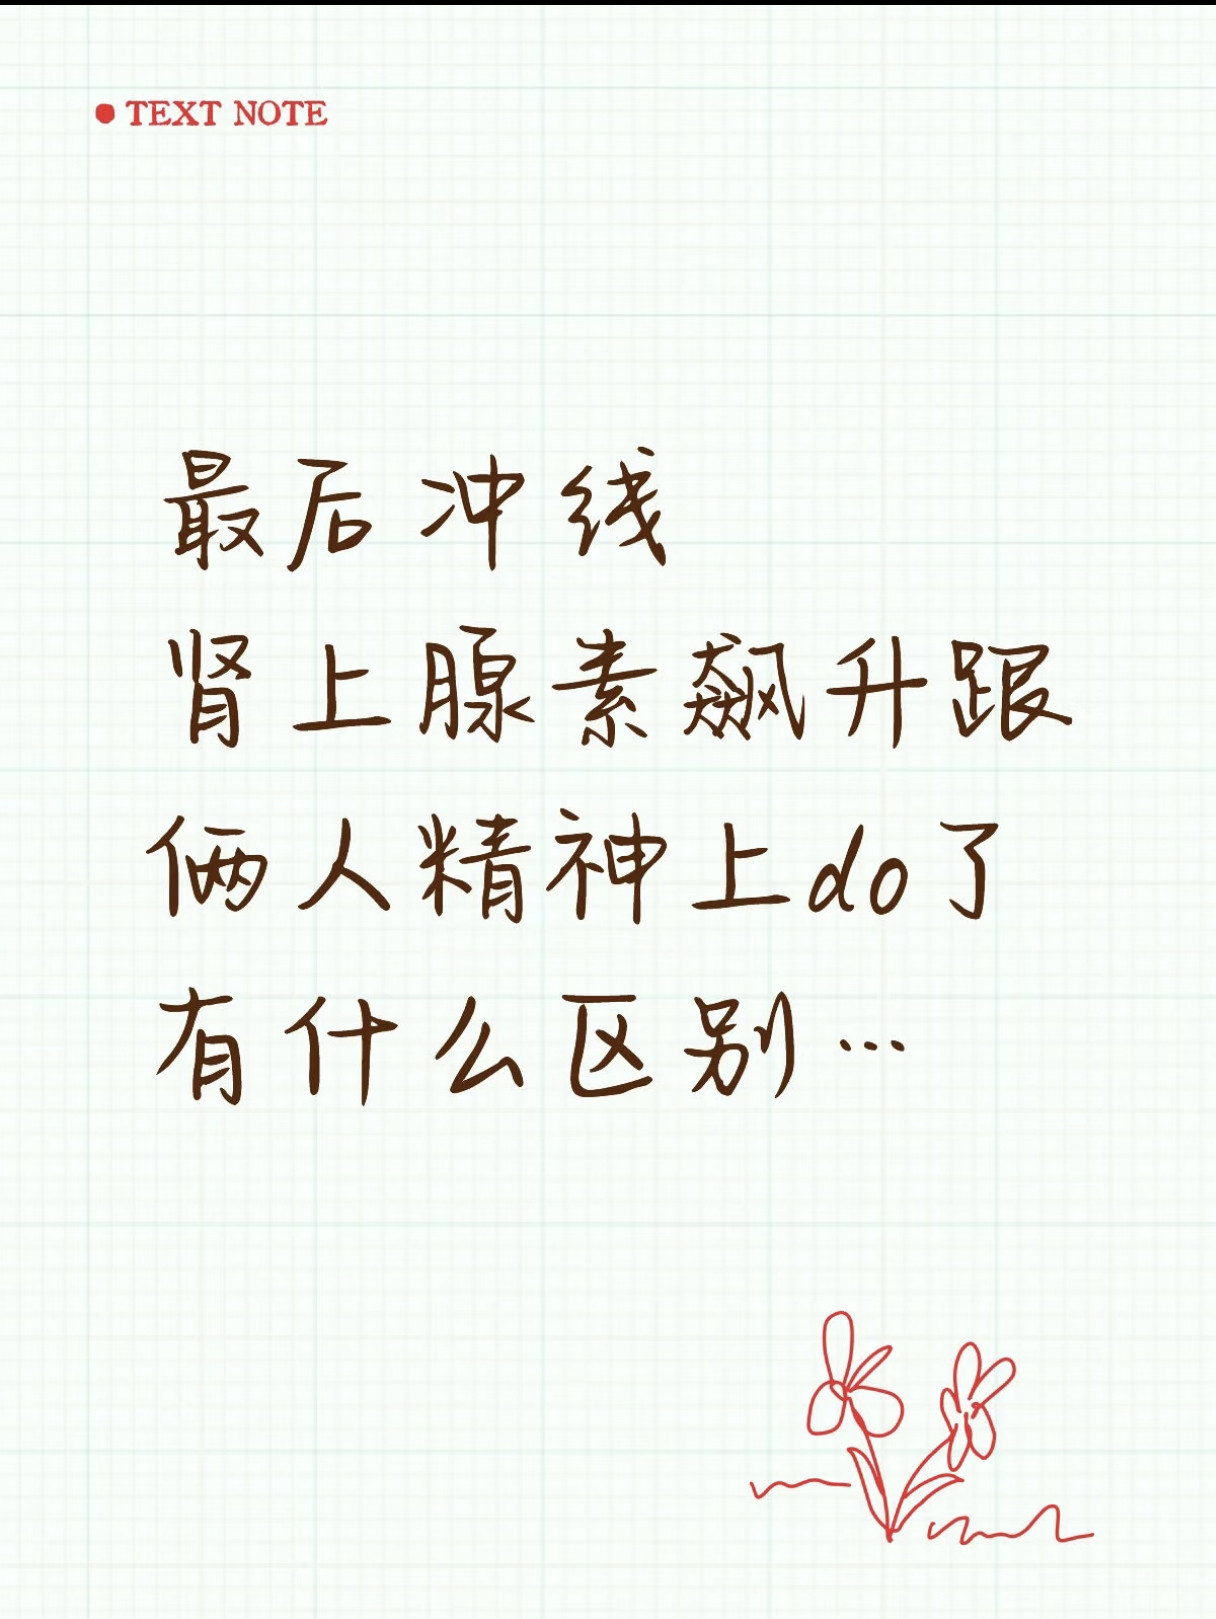 TEXT NOTE
最后冲线
肾上腺素飙升跟
俩人精神上do了
有什么区别…